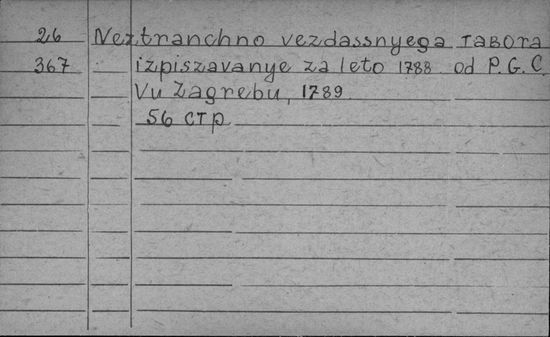 26 Neztranchno vezdassnyega тавоrа
367 izpiszavanye za leto 1788 od P. G. C.
Vu Zagrebu, 1789
56 стр